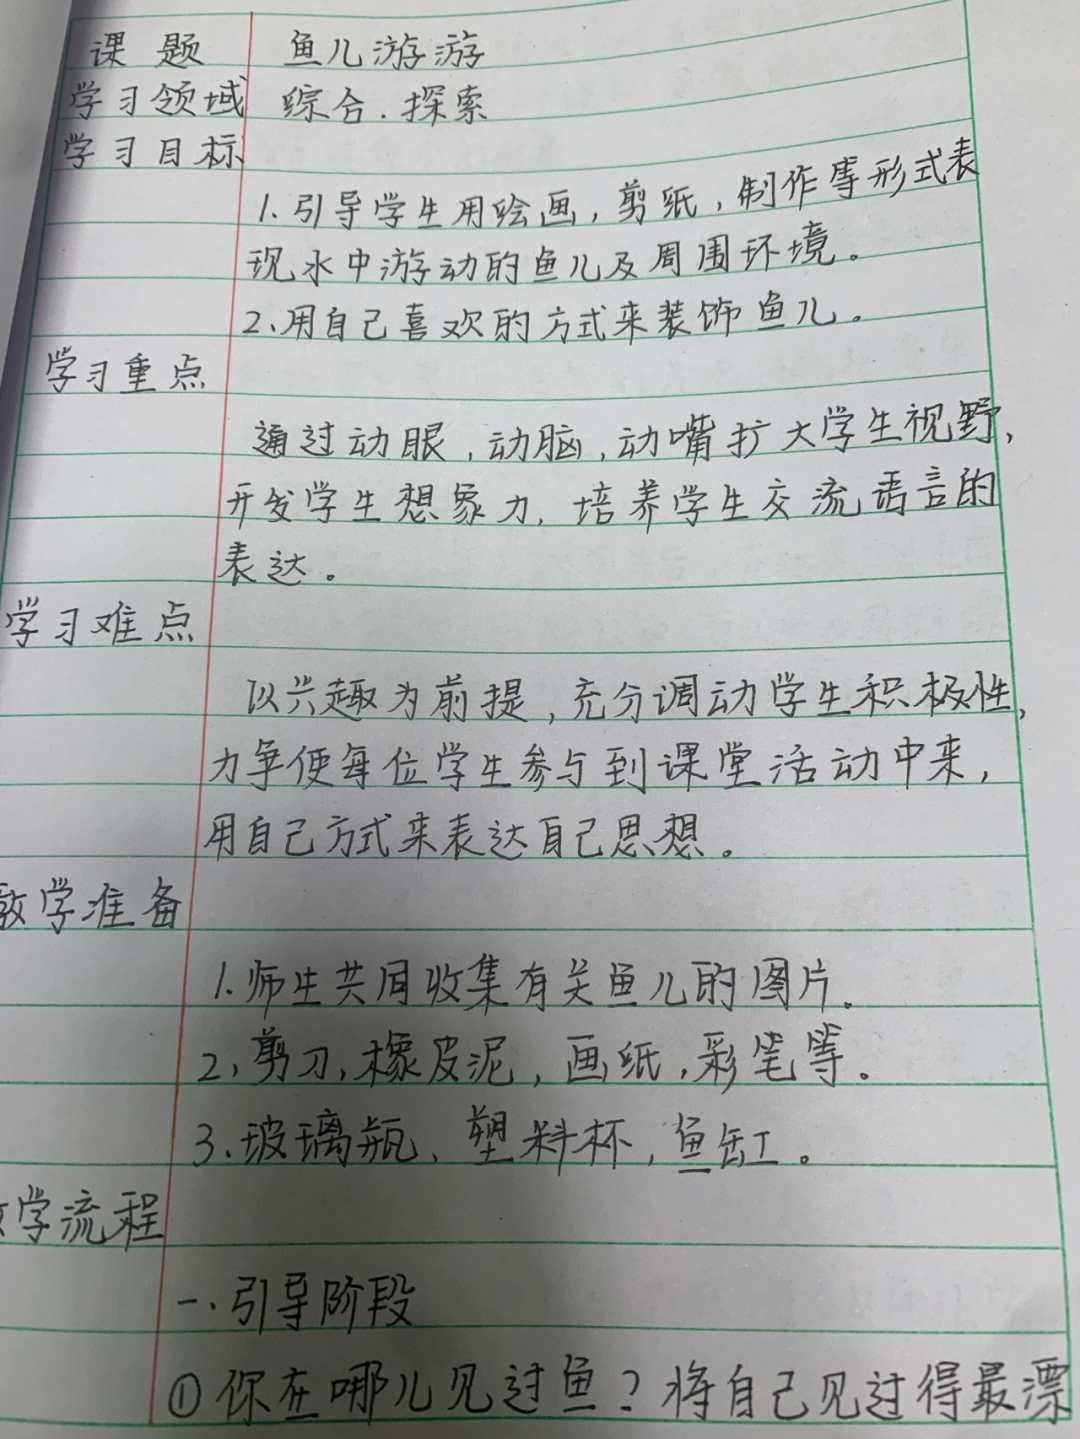 课题 鱼儿游游
学习领域 综合.探索
学习目标
1.引导学生用绘画,剪纸,制作等形式表
现水中游动的鱼儿及周围环境。
2、用自己喜欢的方式来装饰鱼儿。
学习重点
通过动眼,动脑,动嘴扩大学生视野,
开发学生想象力,培养学生交流语言的
表达。
学习难点
以兴趣为前提,充分调动学生积极性,
力争使每位学生参与到课堂活动中来,
用自己方式来表达自己思想。
教学准备
1.师生共同收集有关鱼儿的图片.
2,剪刀,橡皮泥,画纸,彩笔等。
3、玻璃瓶、塑料杯,鱼缸。
教学流程
一、引导阶段
①你在哪儿见过鱼?将自己见过得最漂